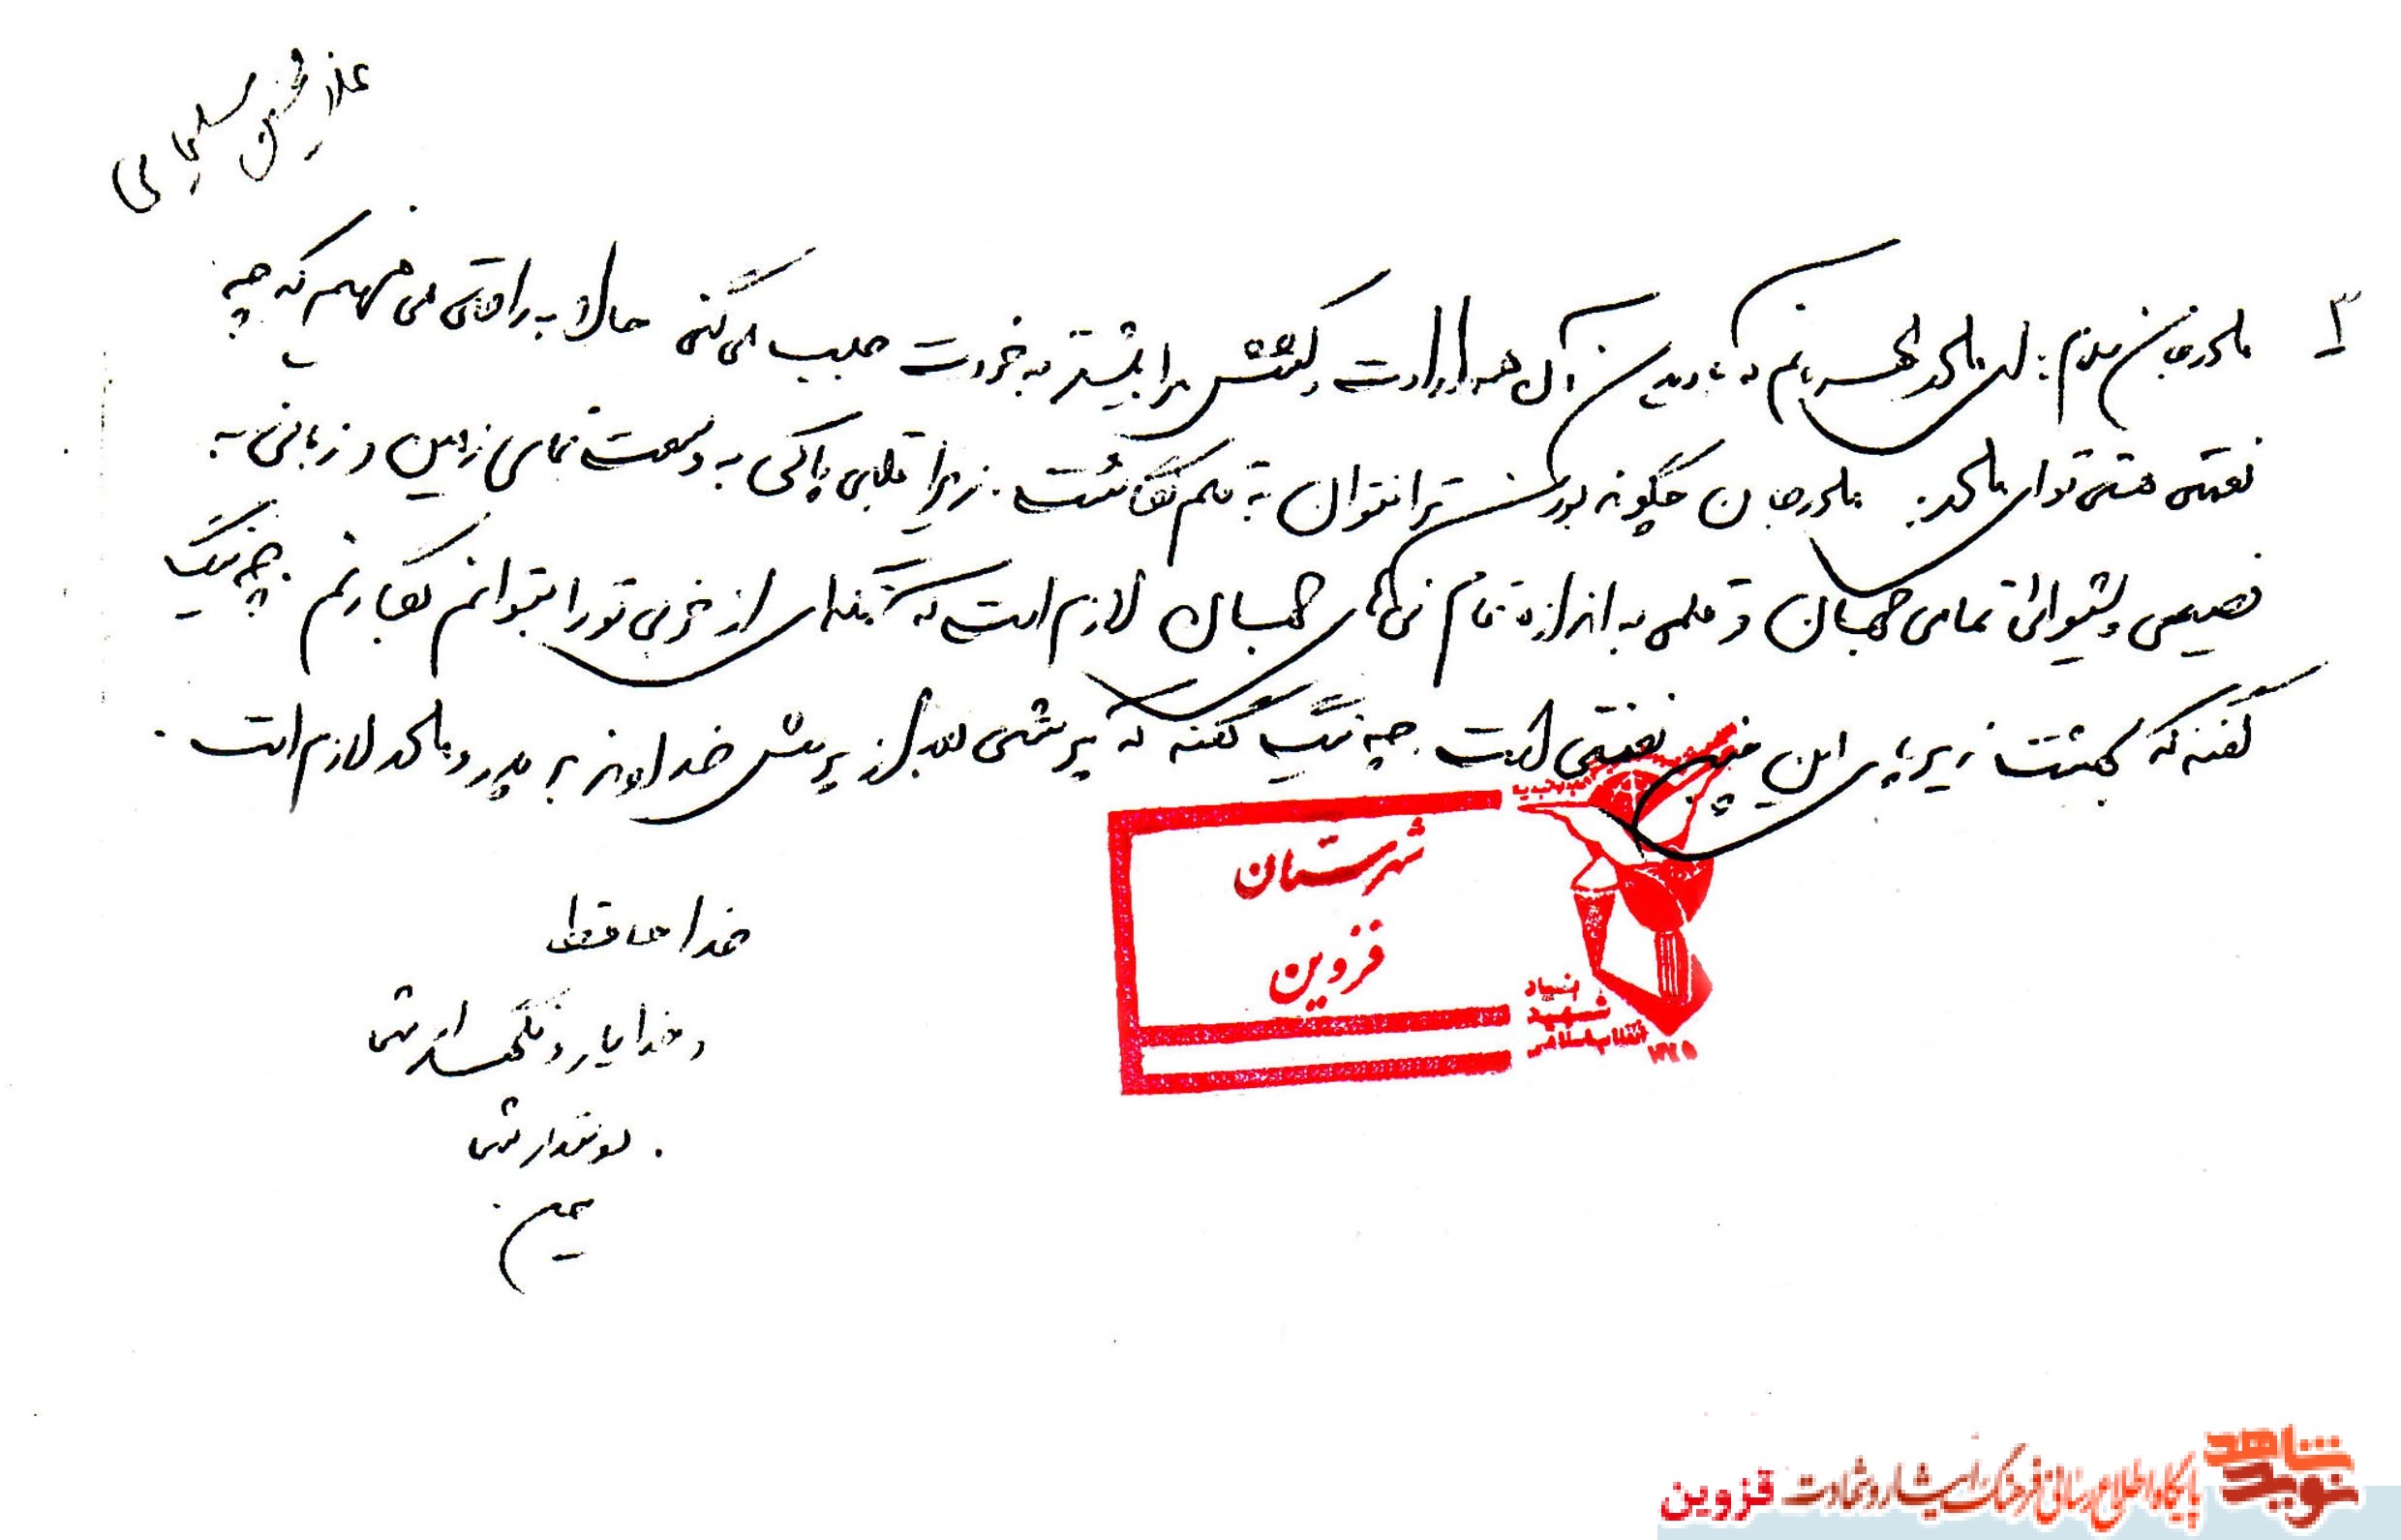 سلیمانی
۳ مادرجان سلام؛ ای مادر مهربانم که با دیدن آن همه ارادت و کشش مرا بیشتر به خودت جلب می‌کنی حالا به راحتی می‌فهمم که چه
نعمتی هستی تو ای مادر. مادرجان چگونه بزرگیت را نتوان به قلم نگاشت. زیرا قلبی پاکی به وسعت تمامی زمین و زبانی به
فصیحی و شیوائی تمامی جهان و قلمی به اندازه تمام نی‌های جهان لازم است که گوشه‌ای از خوبی تو را بتوانم بنگارم. چه نیک
گفته که بهشت زیر پای این چنین نعمتی است. چه نیک گفته که پرستشی بعد از پرستش خداوند بر پدر و مادر لازم است.
خدا حافظ
و خدا یار و نگهدارتان
دوستدار شما
شهرستان
قزوین
بنیاد
شهید
انقلاب اسلامی
نوید شاهد
پایگاه اطلاع رسانی فرهنگ ایثار و شهادت قزوین